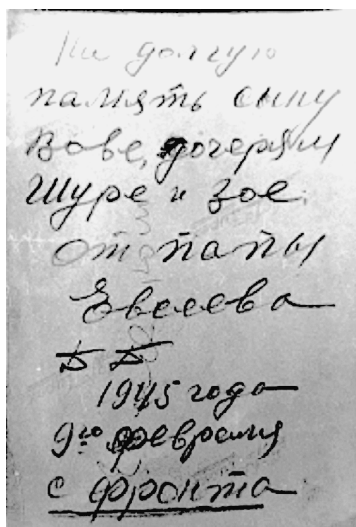 На долгую
память сыну
Вове, дочерям
Шуре и Зое.
от папы
Евсеева
1945 года
9го февраля
с фронта